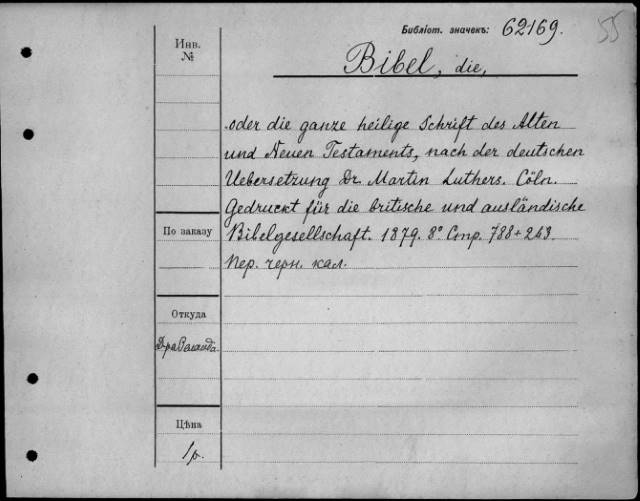 Библіот. значекъ: 62169. 55
Инв.
№
Bibel, die,
oder die ganze heilige Schrift des Alten
und Neuen Testaments, nach der deutschen
Uebersetzung Dr. Martin Luthers. Cöln.
Gedruckt für die britische und ausländische
По заказу
Bibelgesellschaft. 1879. 8° Стр. 788+243.
Пер. черн. кал.
Откуда
Д-ра
Цѣна
1р.